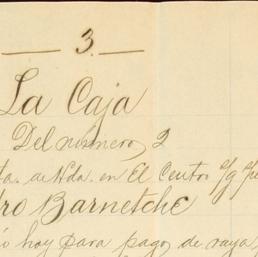 3.
La Caja
Del número 2
ta. de Hda. en El Centro c/g
dro Barnetche
o hay para pago de raya